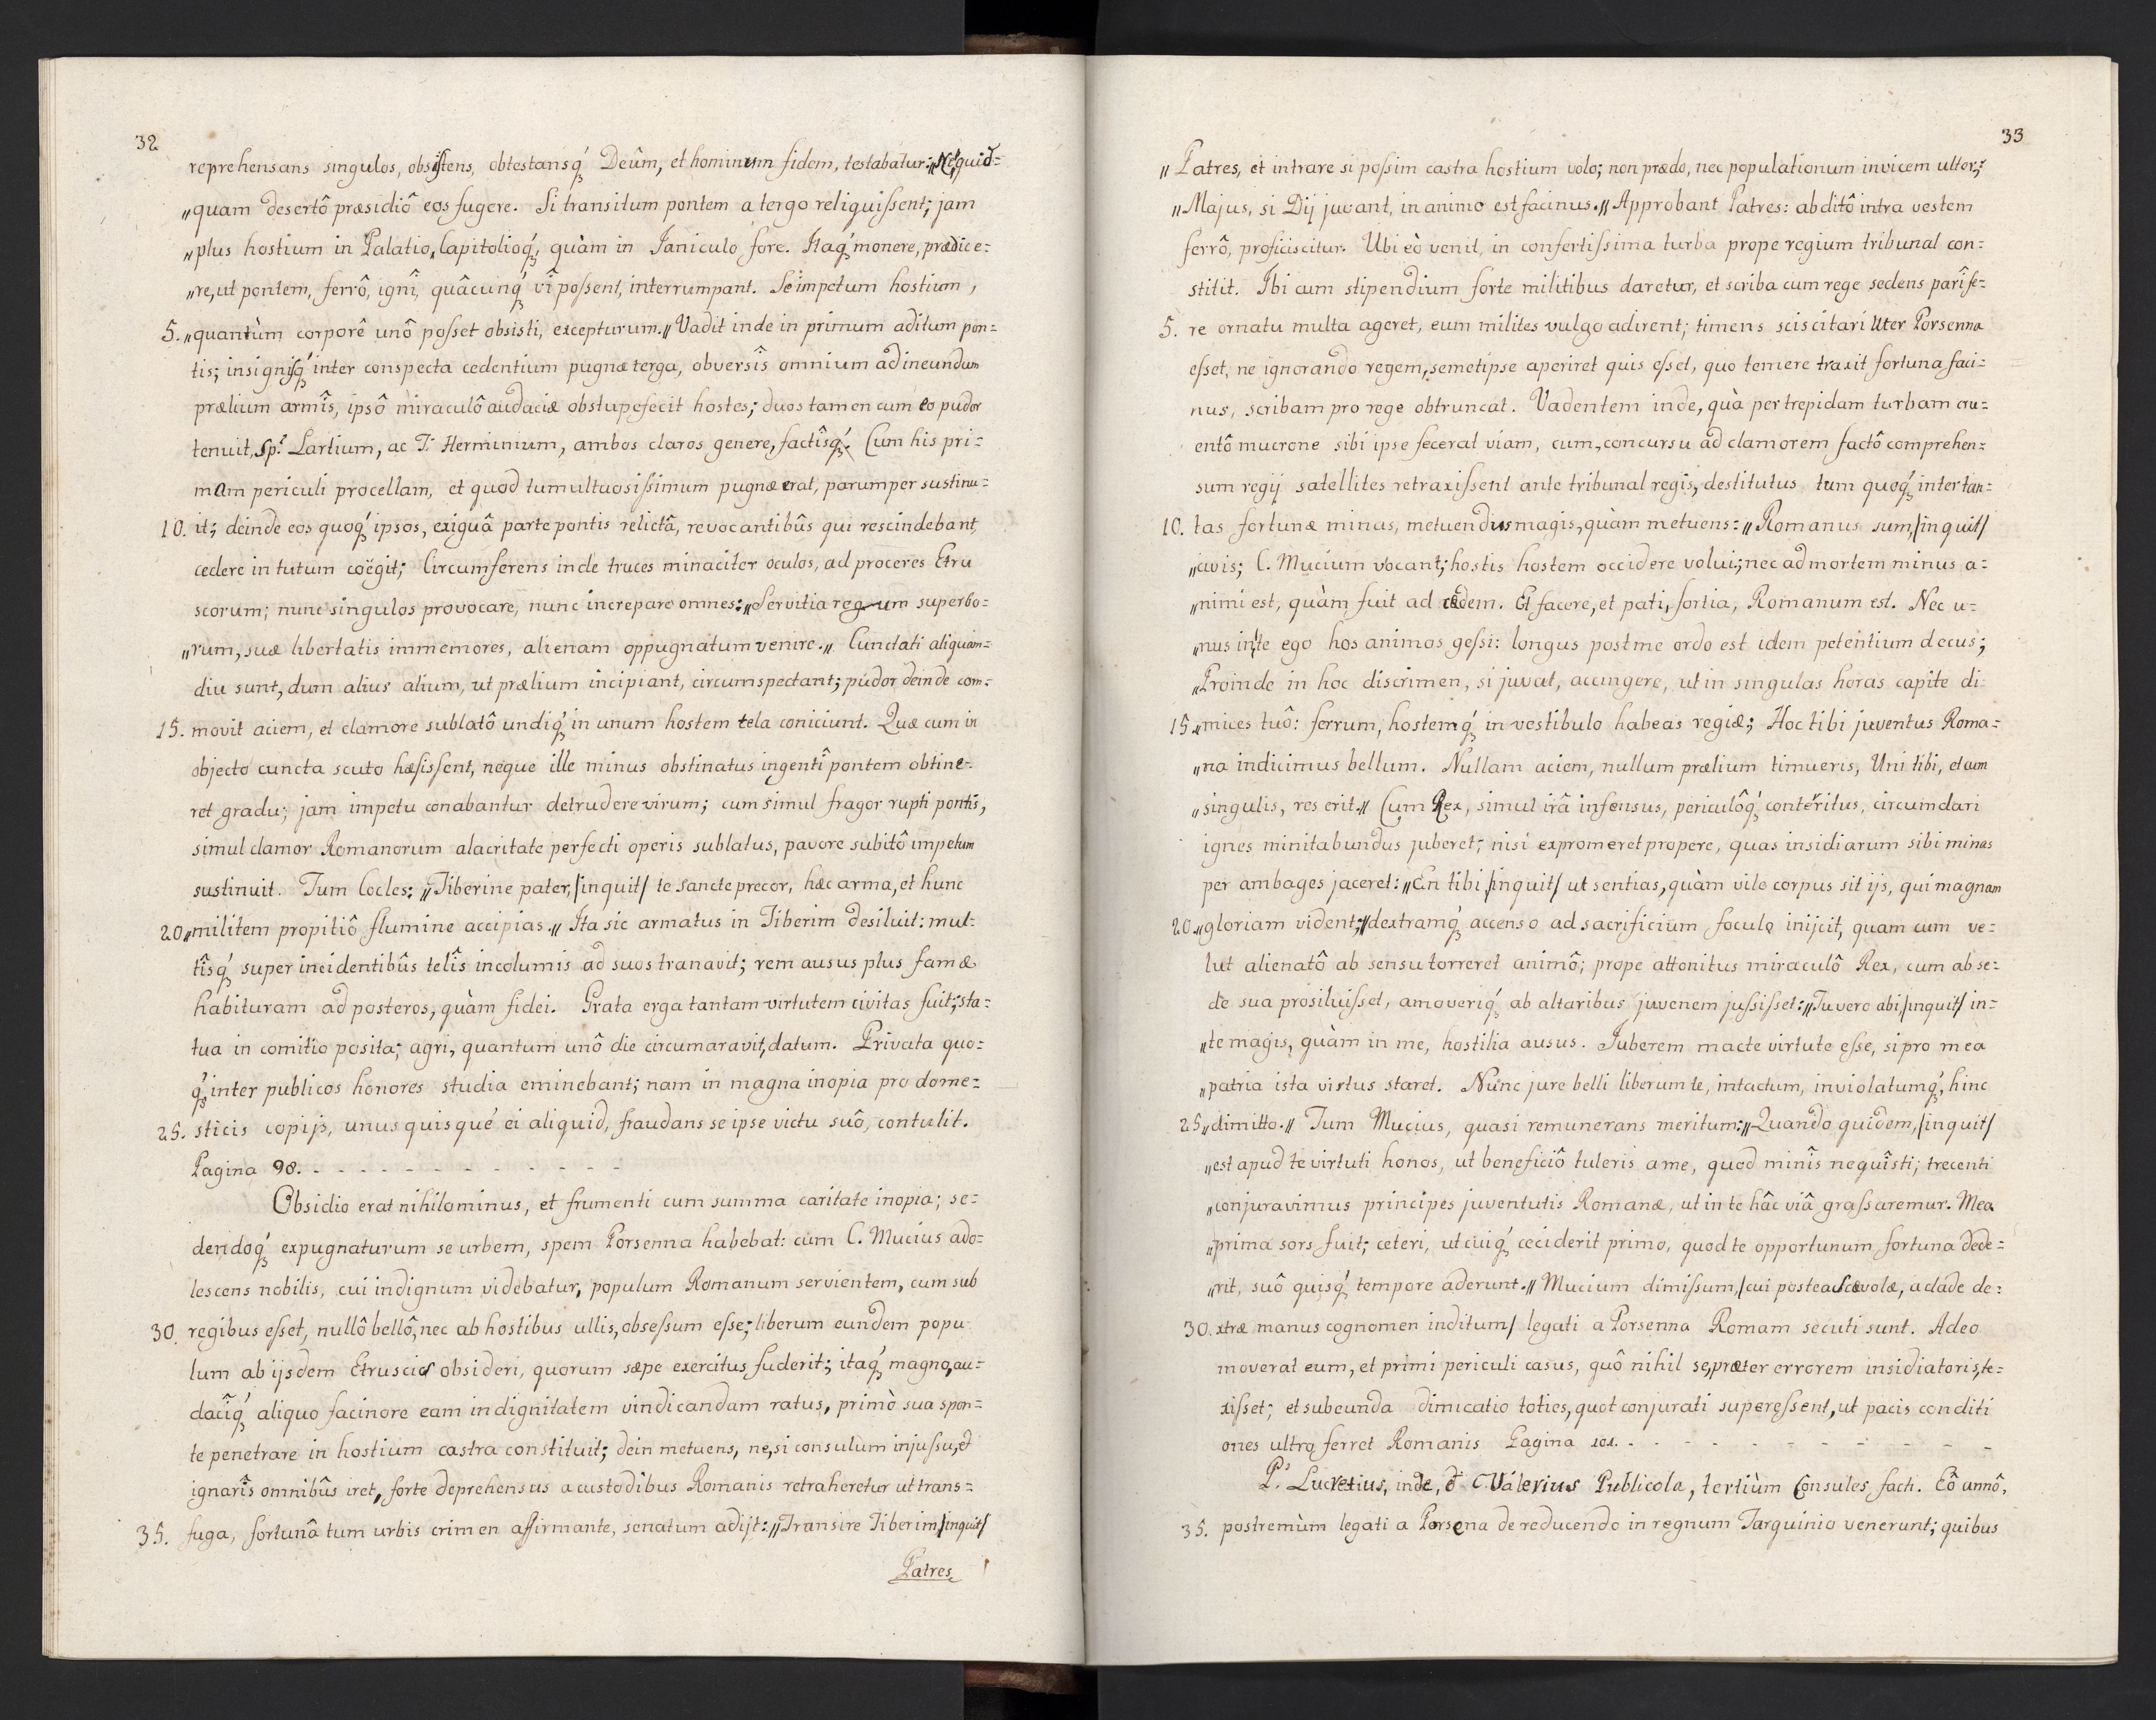 32
reprehensans singulos, obsistens, obtestansq́ꝫ Deûm, et hominum fidem, testabatur: „Nequid=
„quam desertô præsidiô eos fugere. Si transitum pontem a tergo reliquissent; jam
„plus hostium in Palatio, Capitolioq́ꝫ, quàm in Janiculo, fore. Itaq́ꝫ monere, prædice=
„re, ut pontem, ferrô, ignî, quâcunq́ꝫ vî possent, interrumpant. Se impetum hostium,
5. „quantùm corporê unô posset obsisti, excepturum.„ Vadit inde in primum aditum pon=
tis; insignisq́ꝫ inter conspecta cedentium pugnæ terga, obversîs omnium ad ineundum
prælium armîs, ipsô miraculô audaciæ obstupefecit hostes; duos tamen cum eo pudor
tenuit, Sp. Lartium, ac T. Herminium, ambos claros genere, factîsq́ꝫ. Cum his pri=
mam periculi procellam, et quod tumultuosissimum pugnæ erat, parumper sustinu=
10. it; deinde eos quoq́ꝫ ipsos, exiguâ parte pontis relictâ, revocantibûs qui rescindebant,
cedere in tutum coëgit; Circumferens inde truces minaciter oculos, ad proceres Etru
scorum; nunc singulos provocare, nunc increpare omnes: „Servitia regum superbo=
„rum, suæ libertatis immemores, alienam oppugnatum venire.„ Cunctati aliquam=
diu sunt, dum alius alium, ut prælium incipiant, circumspectant; pudor deinde com=
15. movit aciem, et clamore sublatô undiq́ꝫ in unum hostem tela coniciunt. Quæ cum in
objecto cuncta scuto hæsissent, neque ille minus obstinatus ingentî pontem obtine=
ret gradu; jam impetu conabantur detrudere virum; cum simul fragor rupti pontis,
simul clamor Romanorum alacritate perfecti operis sublatus, pavore subitô impetum
sustinuit. Tum Cocles: „Tiberine pater, /inquit/ te sancte precor, hæc arma, et hunc
20 „militem propitiô flumine accipias.„ Ita sic armatus in Tiberim desiluit: mul=
tîsq́ꝫ super incidentibûs telîs incolumis ad suos tranavit; rem ausus plus famæ
habituram ad posteros, quàm fidei. Grata erga tantam virtutem civitas fuit; sta=
tua in comitio posita; agri, quantum unô die circumaravit, datum. Privata quo=
q́ꝫ inter publicos honores studia eminebant; nam in magna inopia pro dome=
25. sticis copijs, unus quisqué ei aliquid, fraudans se ipse victu suô, contulit.
Pagina 98. - - - - - - - - - - - - -
Obsidio erat nihilominus, et frumenti cum summa caritate inopia; se=
dendoq́ꝫ expugnaturum se urbem, spem Porsenna habebat: cum C. Mucius ado=
lescens nobilis, cui indignum videbatur, populum Romanum servientem, cum sub
30. regibus esset, nullô bellô, nec ab hostibus ullis, obsessum esse; liberum eundem popu
lum ab ijsdem Etruscis obsideri, quorum sæpe exercitus fuderit; itaq́ꝫ magno, au=
dacîq́ꝫ aliquo facinore eam indignitatem vindicandam ratus, primò sua spon=
te penetrare in hostium castra constituit; dein metuens, ne, si consulum injussu, et
ignarîs omnibûs iret, forte deprehensus a custodibus Romanis retraheretur ut trans=
35. fuga, fortunâ tum urbis crimen affirmante, senatum adijt: „Transire Tiberim /inquit/
Patres,
33
„Patres, et intrare si possim castra hostium volo; non prædo, nec populationum invicem ultor;
„Majus, si Dij juvant, in animo est facinus.„ Approbant Patres: abditô intra vestem
ferrô, proficiscitur. Ubi eò venit, in confertissima turba prope regium tribunal con=
stitit. Ibi cum stipendium forte militibus daretur, et scriba cum rege sedens parî fe=
5. re ornatu multa ageret, eum milites vulgo adirent; timens sciscitari Uter Porsenna
esset, ne ignorando regem, semetipse aperiret quis esset, quo temere traxit fortuna faci=
nus, scribam pro rege obtruncat. Vadentem inde, quà per trepidam turbam cru=
entô mucrone sibi ipse fecerat viam, cum, concursu ad clamorem factô comprehen=
sum regij satellites retraxissent ante tribunal regis, destitutus tum quoq́ꝫ inter tan=
10. tas fortunæ minas, metuendus magis, quàm metuens: „Romanus sum, /inquit/
„civis; C. Mucium vocant; hostis hostem occidere volui; nec ad mortem minus a=
„nimi est, quàm fuit ad cædem. Et facere, et pati, fortia, Romanum est. Nec u=
„nus in te ego hos animos gessi: longus post me ordo est idem petentium decus;
„Proinde in hoc discrimen, si juvat, accingere, ut in singulas horas capite di=
15 „mices tuô: ferrum, hostemq́ꝫ in vestibulo habeas regiæ; Hoc tibi juventus Roma=
„na indicimus bellum. Nullam aciem, nullum prælium timueris, Uni tibi, et cum
„singulis, res erit.„ Cum Rex, simul irâ infensus, periculôq́ꝫ conterritus, circumdari
ignes minitabundus juberet; nisi expromeret propere, quas insidiarum sibi minas
per ambages jaceret: „En tibi /inquit/ ut sentias, quàm vile corpus sit ijs, qui magnam
20. „gloriam vident;„ dextramq́ꝫ accenso ad sacrificium foculo inijcit, quam cum ve=
lut alienatô ab sensu torreret animô; prope attonitus miraculô Rex, cum ab se=
de sua prosiluisset, amoveriq́ꝫ ab altaribus juvenem jussisset: „Tu vero abi, /inquit/ in=
„te magis, quàm in me, hostilia ausus. Juberem macte virtute esse, si pro mea
„patria ista virtus staret. Nunc jure belli liberum te, intactum, inviolatumq́ꝫ, hinc
25 „dimitto.„ Tum Mucius, quasi remunerans meritum: „Quando quidem, /inquit/
„est apud te virtuti honos, ut beneficiô tuleris a me, quod minîs nequîsti; trecenti
„conjuravimus principes juventutis Romanæ, ut in te hâc viâ grassaremur. Mea
„prima sors fuit; ceteri, ut cuiq́ꝫ ceciderit primo, quod te opportunum fortuna dede=
„rit, suô quisq́ꝫ tempore aderunt.„ Mucium dimissum, /cui postea Scævolæ, a clade de=
30. xtræ manus cognomen inditum/ legati a Porsenna Romam secuti sunt. Adeo
moverat eum, et primi periculi casus, quô nihil se, præter errorem insidiatoris, te=
xisset; et subeunda dimicatio toties, quot conjurati superessent, ut pacis conditi
ones ultro ferret Romanis Pagina 101. - - - - - - - - - - -
P. Lucretius, inde, et Valerius Publicola, tertiùm Consules facti. Eô annô,
35. postremùm legati a Porsena de reducendo in regnum Tarquinio venerunt; quibus